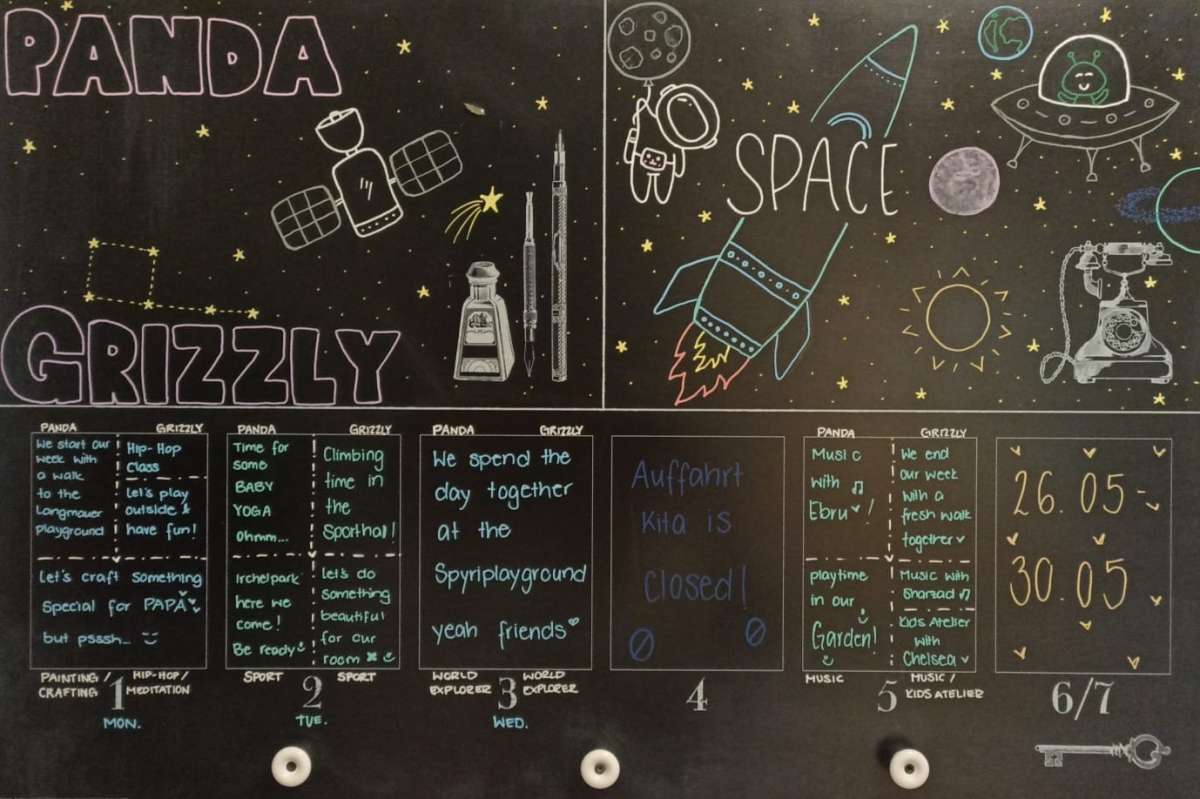 PANDA
GRIZZLY
SPACE
PANDA
GRIZZLY
We start our
week with
a walk
to the
Langmauer
playground
Hip-Hop
Class
Let's play
outside &
have fun!
Let's craft something
special for PAPA
but psssh...
PAINTING /
CRAFTING
HIP-HOP /
MEDITATION
1
MON.
PANDA
GRIZZLY
Time for
some
BABY
YOGA
Ohmm...
Climbing
time in
the
Sporthall!
Irchelpark
here we
come!
Be ready
Let's do
something
beautiful
for our
room
SPORT
SPORT
2
TUE.
PANDA
GRIZZLY
We spend the
day together
at the
Spyriplayground
yeah friends
WORLD
EXPLORER
WORLD
EXPLORER
3
WED.
Auffahrt
Kita is
closed!
4
PANDA
GRIZZLY
Music
with
Ebru !
We end
our week
with a
fresh walk
together
playtime
in our
Garden!
Music with
Sharzad
Kids Atelier
with
Chelsea
MUSIC
MUSIC /
KIDS ATELIER
5
26.05-
30.05
6/7